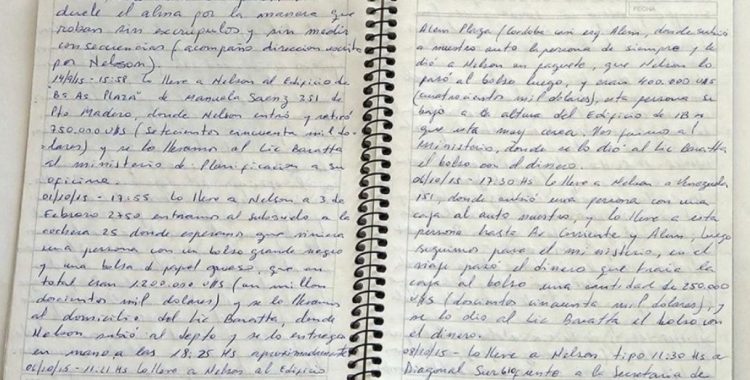 duele el alma por la manera que
roban sin escrupulos y sin medir
consecuencias (acompaño direccion escrita
por Nelson).
14/9/15 - 15:58 Lo lleve a Nelson al Edificio de
"Bs As PLAZA" de Manuela Saenz 351 de
Pto Madero, donde Nelson entró y retiró
750.000 U$S (Setecientos cincuenta mil do-
lares) y se lo llevamos al Lic Baratta
al ministerio de Planificacion a su
oficina.
01/10/15 - 17:55 Lo lleve a Nelson a 3 de
Febrero 2750 entramos al subsuelo a la
cochera 25 donde esperamos que viniera
una persona con un bolso grande negro
y una bolsa d papel grueso, que en
total eran 1.200.000 U$S (un millon
docientos mil dolares) y se lo llevamos
al domicilio del Lic Baratta, donde
Nelson subió al depto y se lo entrego
en mano a las 18:25 Hs aproximadamente
06/10/15 - 11:11 Hs Lo lleve a Nelson al Edificio
FECHA
Alem Plaza (Cordoba casi esq. Alem, donde subió
a nuestro auto la persona de siempre y le
dió a Nelson un paquete, que Nelson lo
pasó al bolso luego, y eran 400.000 U$S
(cuatrocientos mil dolares), esta persona se
bajo a la altura del Edificio de IBM
que esta muy cerca. Nos fuimos al
Ministerio, donde se lo dió al Lic Baratta
el bolso con el dinero.
06/10/15 - 17:30 Hs Lo lleve a Nelson a Venezuela
151, donde subió una persona con una
caja al auto nuestro, y lo lleve a esta
persona hasta Av Corriente y Alem, luego
seguimos para el ministerio, en el
viaje pasó el dinero que traia la
caja al bolso una cantidad de 250.000
U$S (doscientos cincuenta mil dolares), y
se lo dio al Lic Baratta el bolso con
el dinero.
08/10/15 - Lo lleve a Nelson tipo 11:30 Hs a
Diagonal Sur 610, frente a la Secretaria de